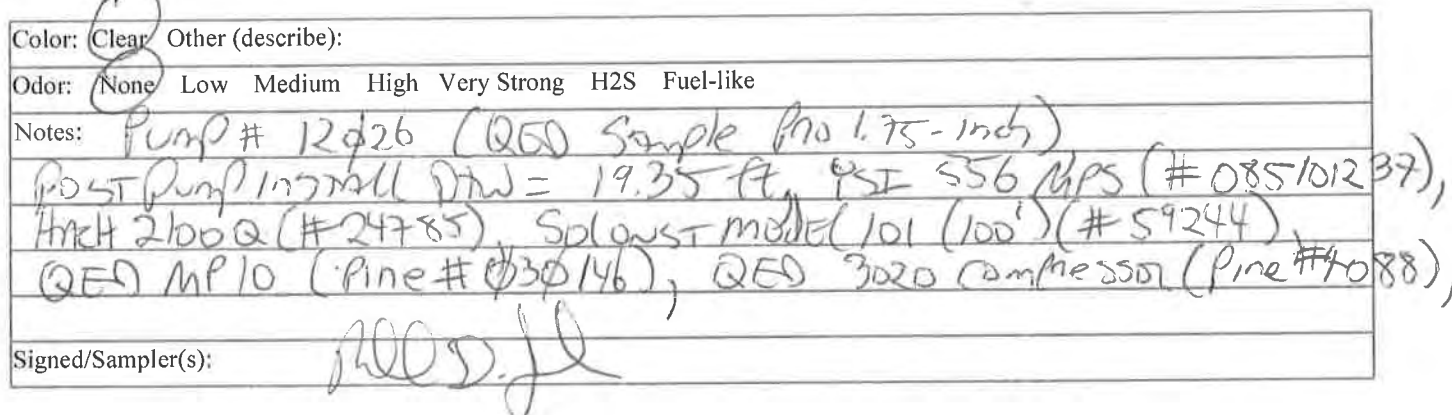 Color: Clear Other (describe):
Odor: None Low Medium High Very Strong H2S Fuel-like
Notes: Pump # 12026 (QED Sample Pro 1.75-inch)
Post pump install DTW = 19.35 ft, YSI 556 MPS (# 08510 1237),
HACH 2100Q (#24785), Solonst model 101 (100') (# 59244)
QED MP10 (Pine # 030146), QED 3020 compressor (Pine #4088),
Signed/Sampler(s):